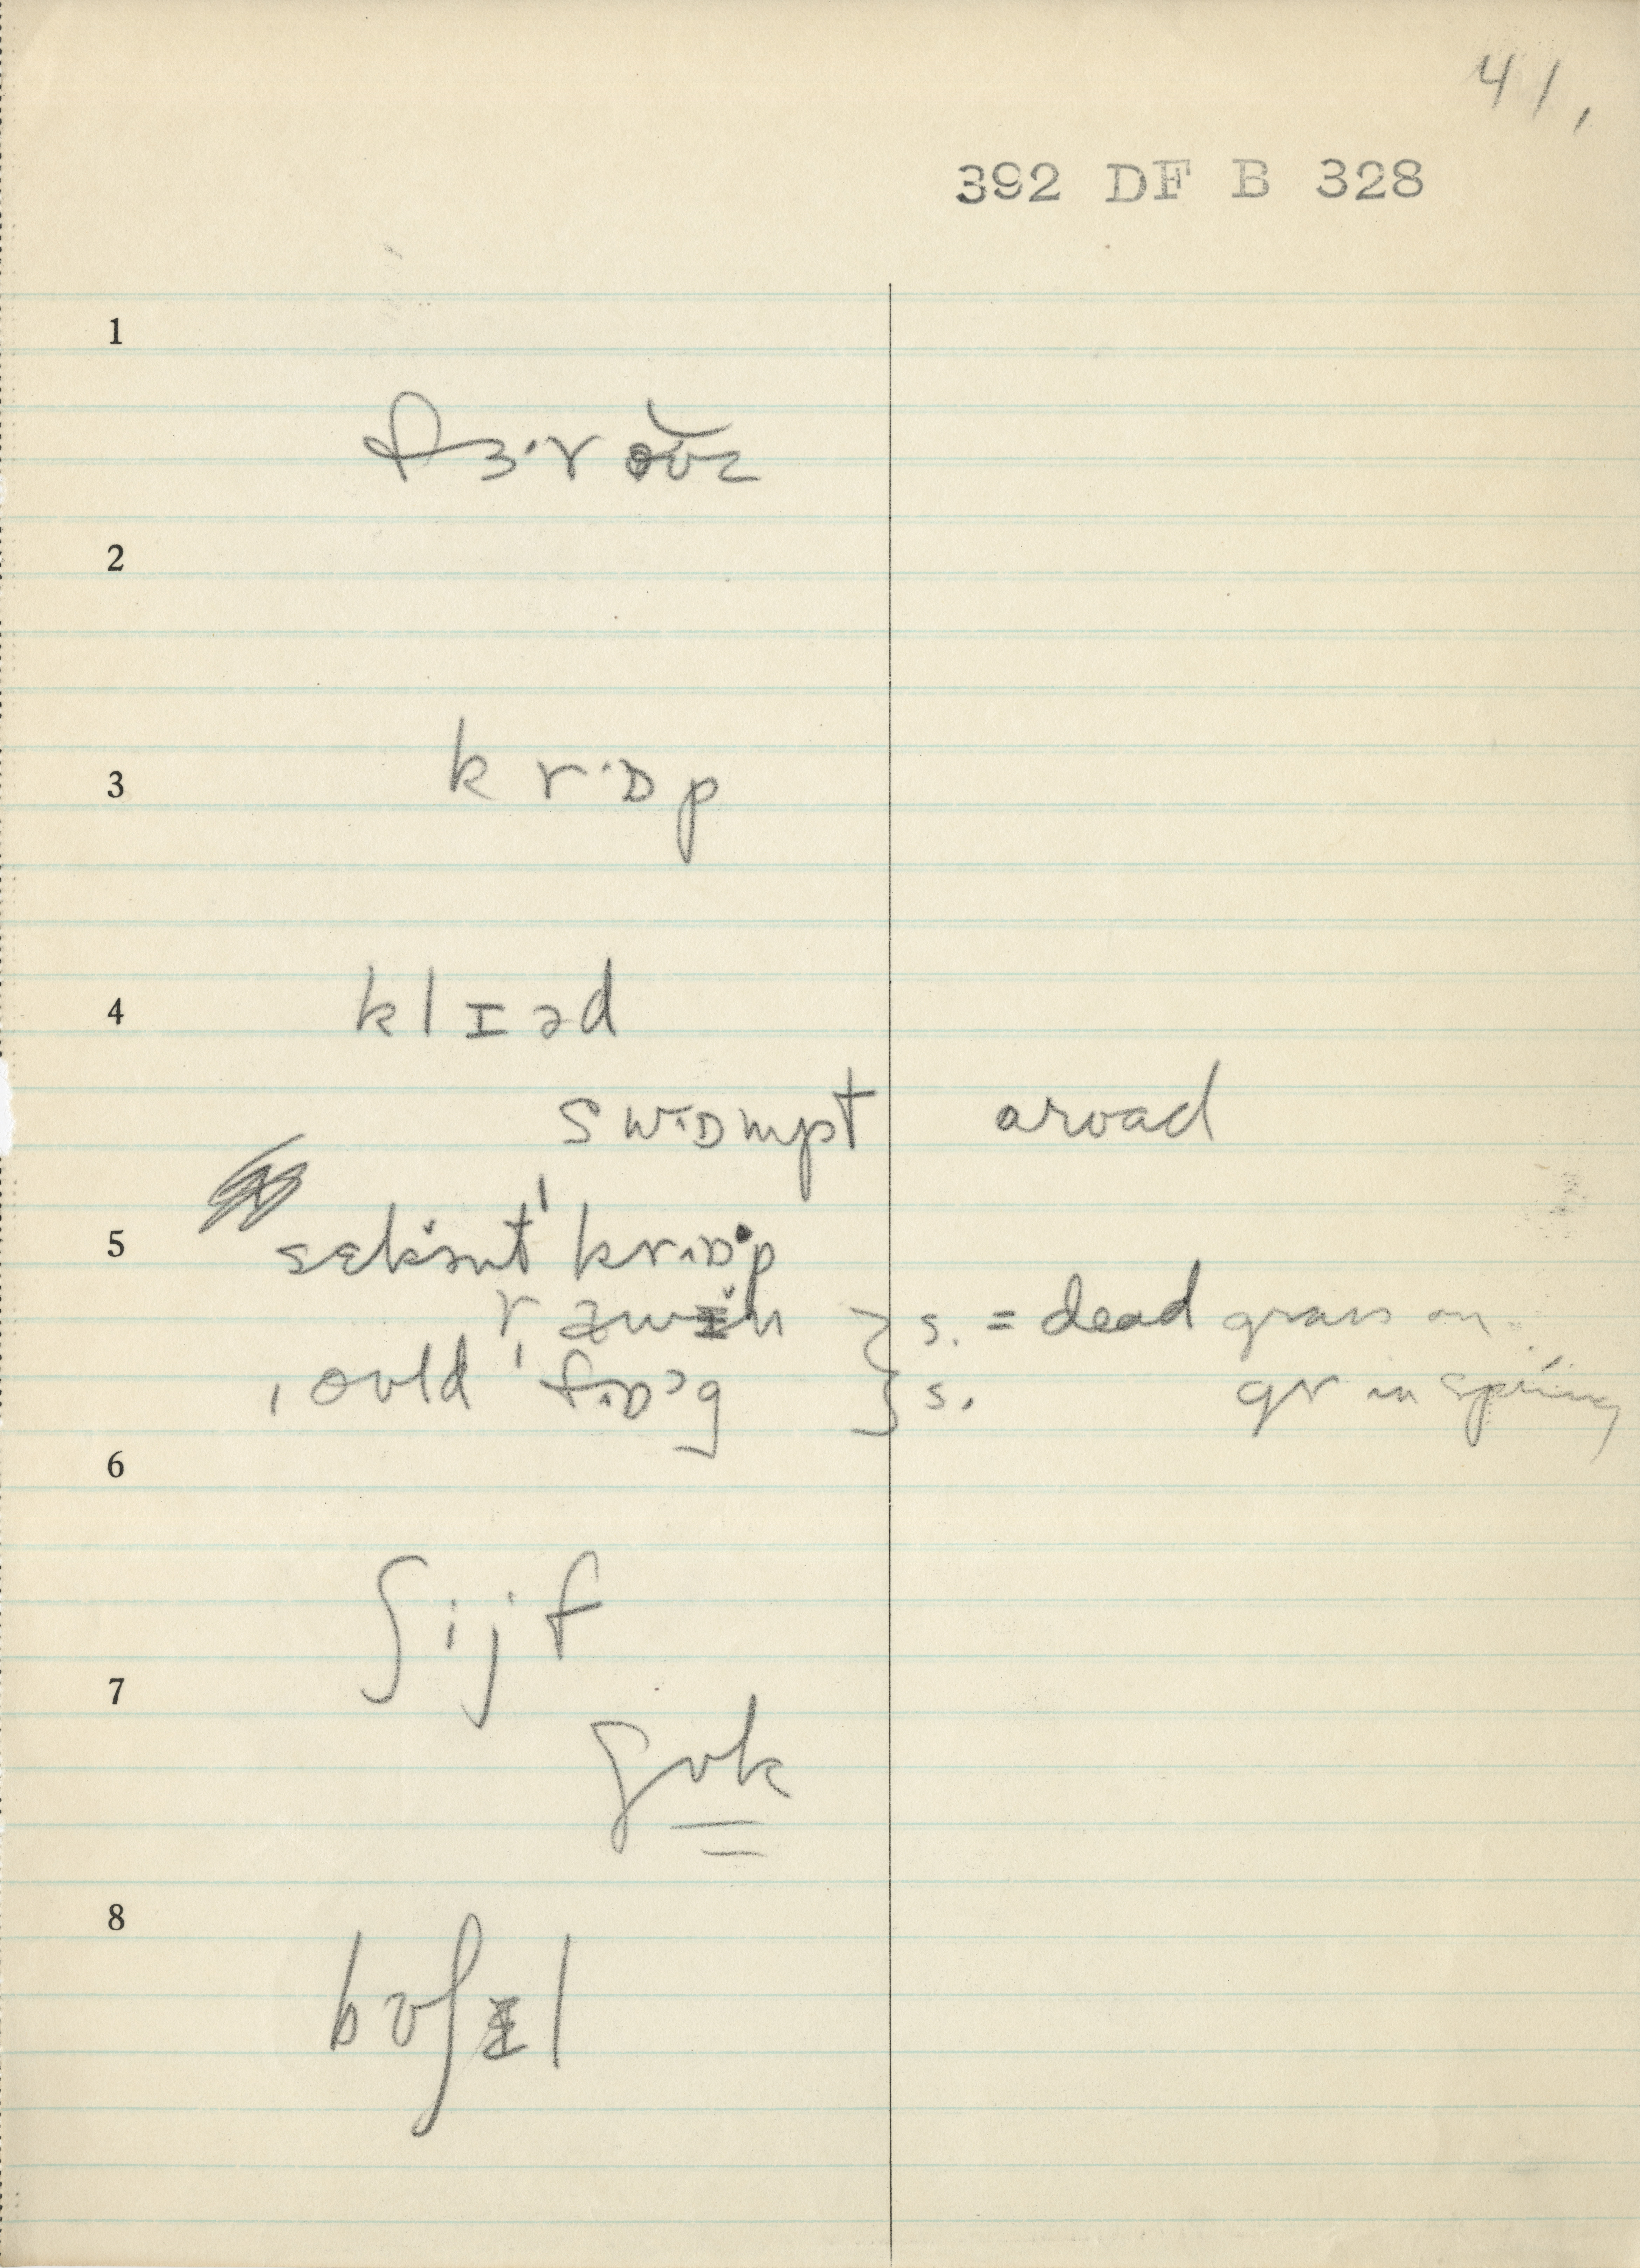 41.
392 DF B 328
1
fɜ·roʊz
2
3
kr·ɒp
4
klɪəd
swɒmpt aroad
5
sekənt' krɒp
} s. = dead grass on
ˌoʊld 'fɒg } s. gr in spring
6
ʃijf
7
ʃʊk
8
bʊʃɪl